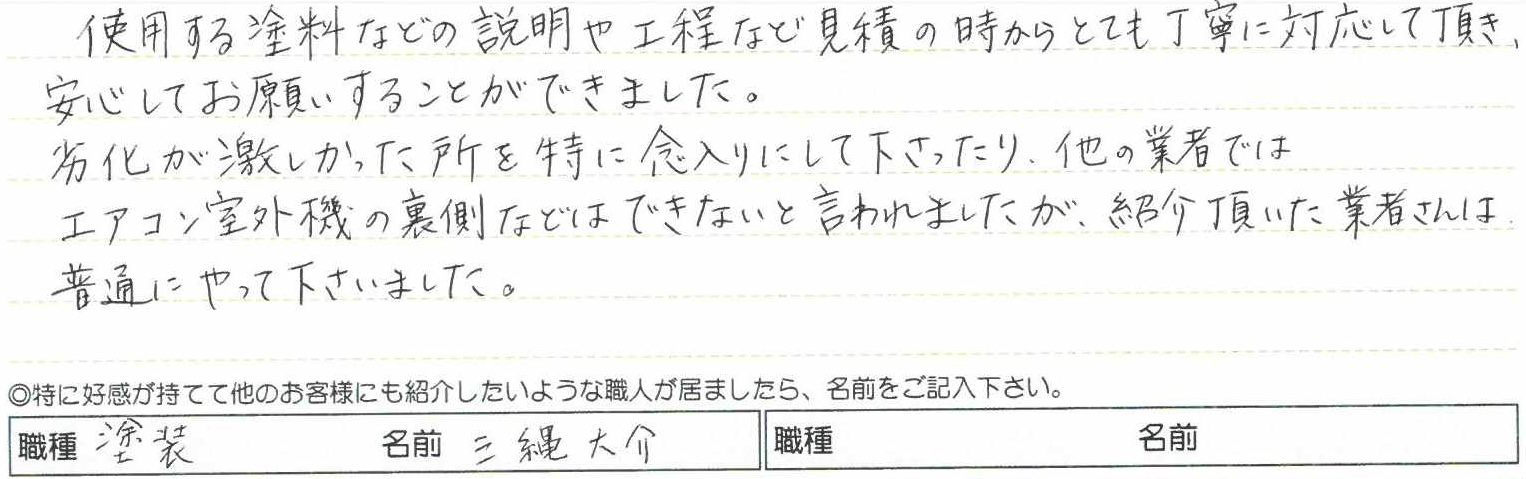 使用する塗料などの説明や工程など見積の時からとても丁寧に対応して頂き、
安心してお願いすることができました。
劣化が激しかった所を特に念入りにして下さったり、他の業者では
エアコン室外機の裏側などはできないと言われましたが、紹介頂いた業者さんは
普通にやって下さいました。
◎特に好感が持てて他のお客様にも紹介したいような職人が居ましたら、名前をご記入下さい。
職種 塗装 名前 三縄大介 職種 名前